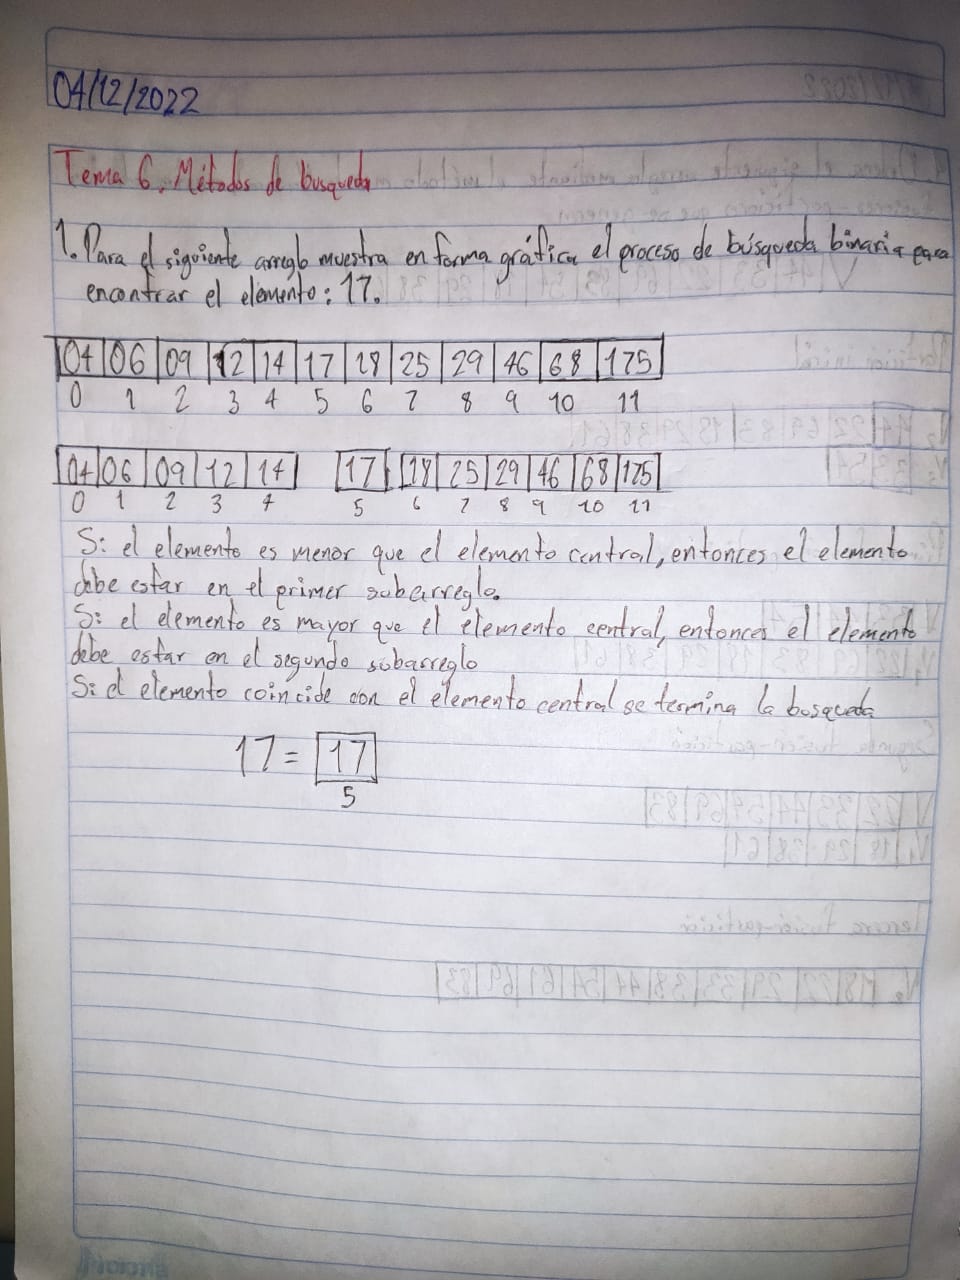 04/12/2022
Tema 6. Métodos de busqueda
1. Para el siguiente arreglo muestra en forma gráfica el proceso de búsqueda binaria para
encontrar el elemento: 17.
04 06 09 12 14 17 18 25 29 46 68 175
0 1 2 3 4 5 6 7 8 9 10 11
04 06 09 12 14 17 18 25 29 46 68 175
0 1 2 3 4 5 6 7 8 9 10 11
Si el elemento es menor que el elemento central, entonces el elemento
debe estar en el primer subarreglo.
Si el elemento es mayor que el elemento central, entonces el elemento
debe estar en el segundo subarreglo
Si el elemento coincide con el elemento central se termina la busqueda
17 = 17
5